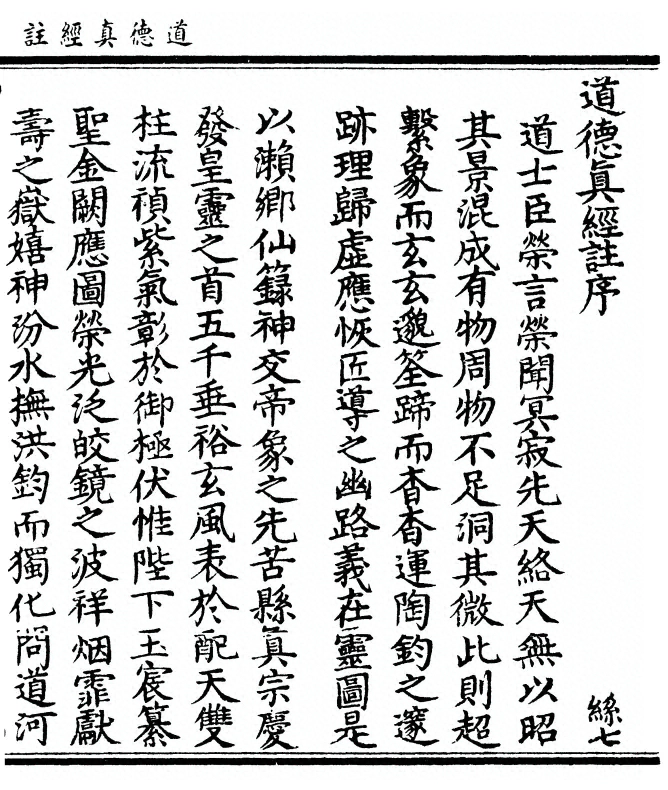 道德真經註
道德眞經註序
絲七
道士臣榮言榮聞冥寂先天絡天無以昭
其景混成有物周物不足洞其微此則超
繫象而玄玄邈筌蹄而杳杳運陶鈞之邃
跡理歸虛應恢匠導之幽路義在靈圖是
以瀨鄉仙籙神交帝象之先苦縣眞宗慶
發皇靈之首五千垂裕玄風表於配天雙
柱流禎紫氣彰於御極伏惟陛下玉宸纂
聖金闕應圖榮光泛皎鏡之波祥烟霏獻
壽之嶽嬉神汾水撫洪鈞而獨化問道河